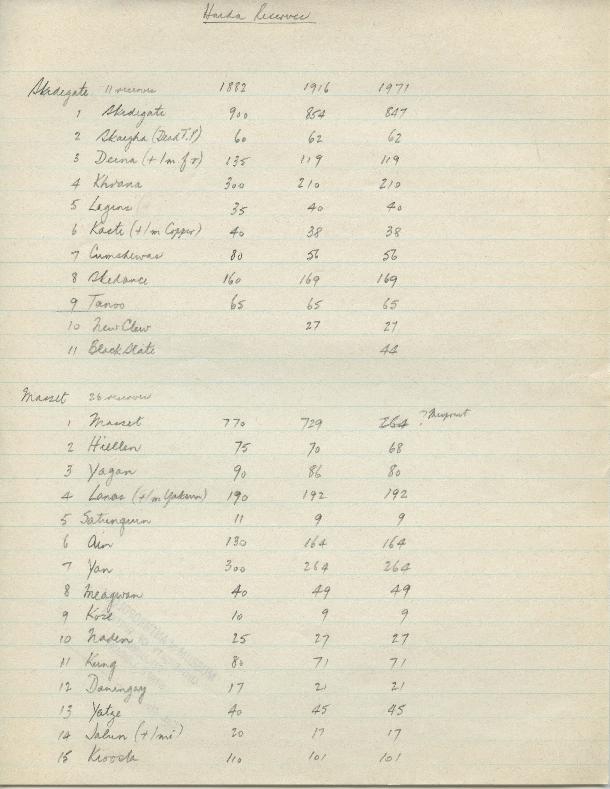 Haida Reserves
Skidegate 11 reserves 1882 1916 1971
1 Skidegate 900 854 847
2 Skaigha (Dead T.P) 60 62 62
3 Deena (+ 1 m. f r) 135 119 119
4 Khrana 300 210 210
5 Lagins 35 40 40
6 Kaste (+/m Copper) 40 38 38
7 Cumshewas 80 56 56
8 Skedance 160 169 169
9 Tanoo 65 65 65
10 New Clew 27 27
11 Black Slate 44
Masset 26 reserves
1 Masset 770 729 264 ? Misprint
2 Hiellen 75 70 68
3 Yagan 90 86 80
4 Lanas (+/m Yakoun) 190 192 192
5 Satunquin 11 9 9
6 Ain 130 164 164
7 Yan 300 264 264
8 Meagwan 40 49 49
9 Kose 10 9 9
10 Naden 25 27 27
11 Kung 80 71 71
12 Daningay 17 21 21
13 Yatze 40 45 45
14 Jalun (+/mi) 20 17 17
15 Kiooda 110 101 101